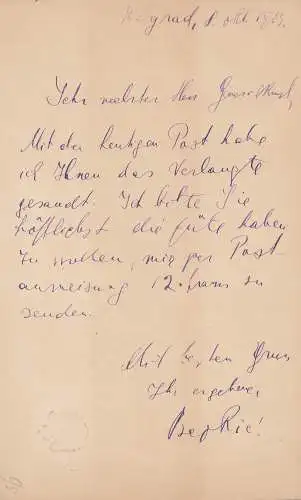 8. Okt. 19
Sehr Herr
Mit der heutigen Post habe
ich Ihnen das Verlangte
gesandt. Ich bitte Sie
höfflichst die Güte haben
zu wollen, mir per Post
anweisung 12. zu
senden.
Mit besten Gruss
Ihr ergebener